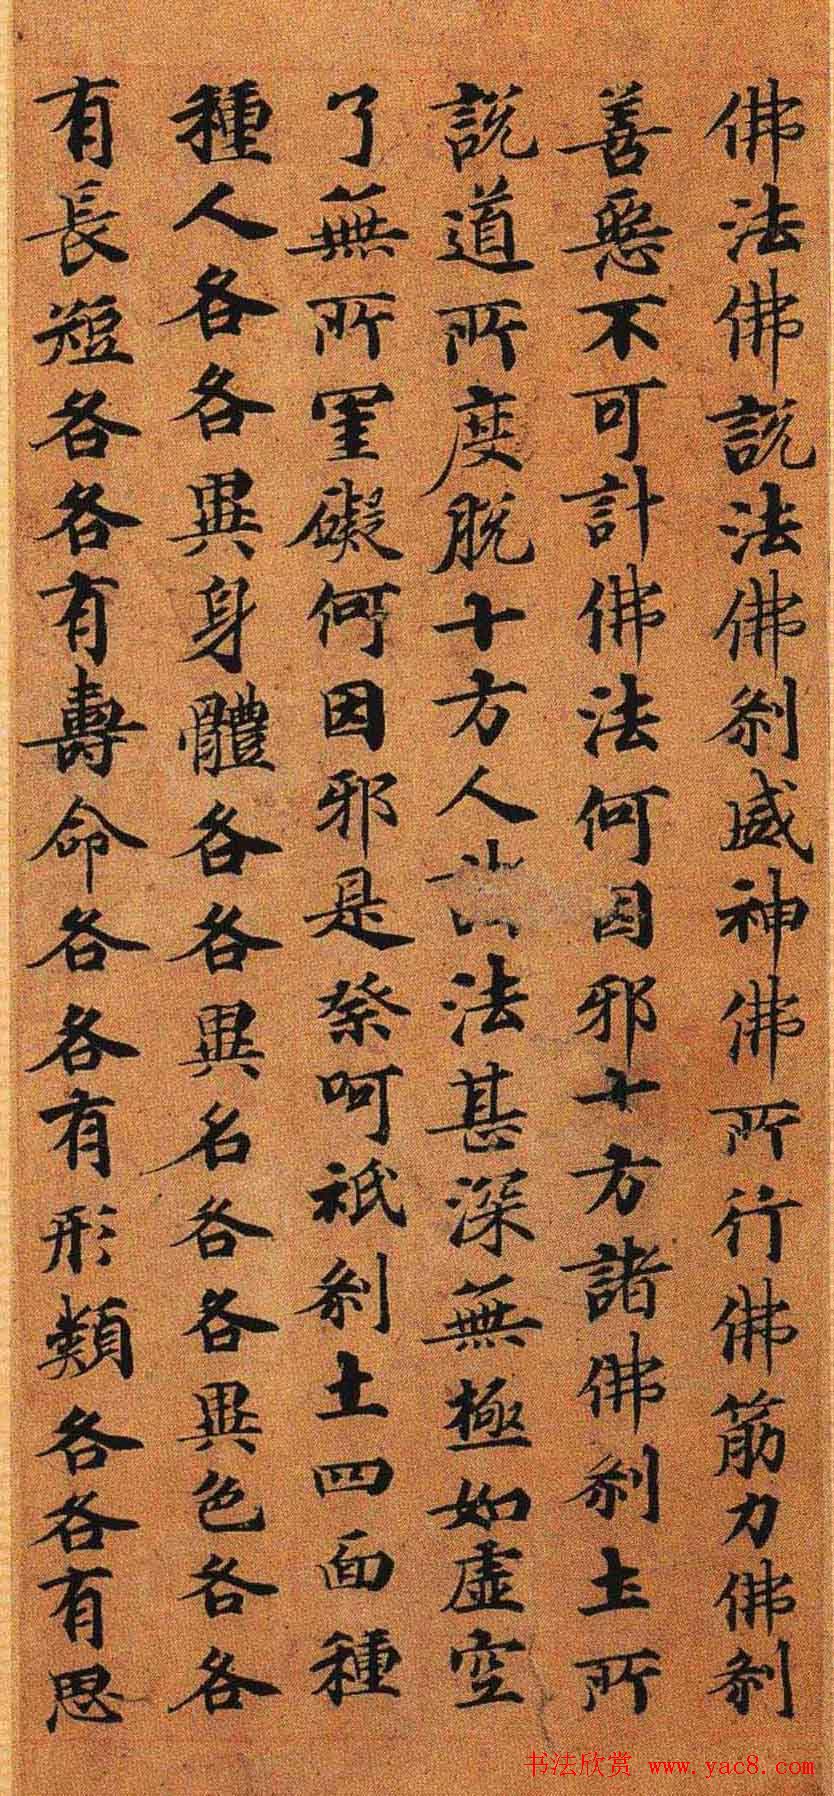 佛法佛説法佛刹威神佛所行佛筋力佛刹
善惡不可計佛法何因邪十方諸佛刹土所
説道所度脱十方人法甚深無極如虚空
了無所罣礙何因邪是祭呵祇刹土四面種
種人各各異身體各各異名各各異色各各
有長短各各有壽命各各有形類各各有思
书法欣赏 www.yac8.com